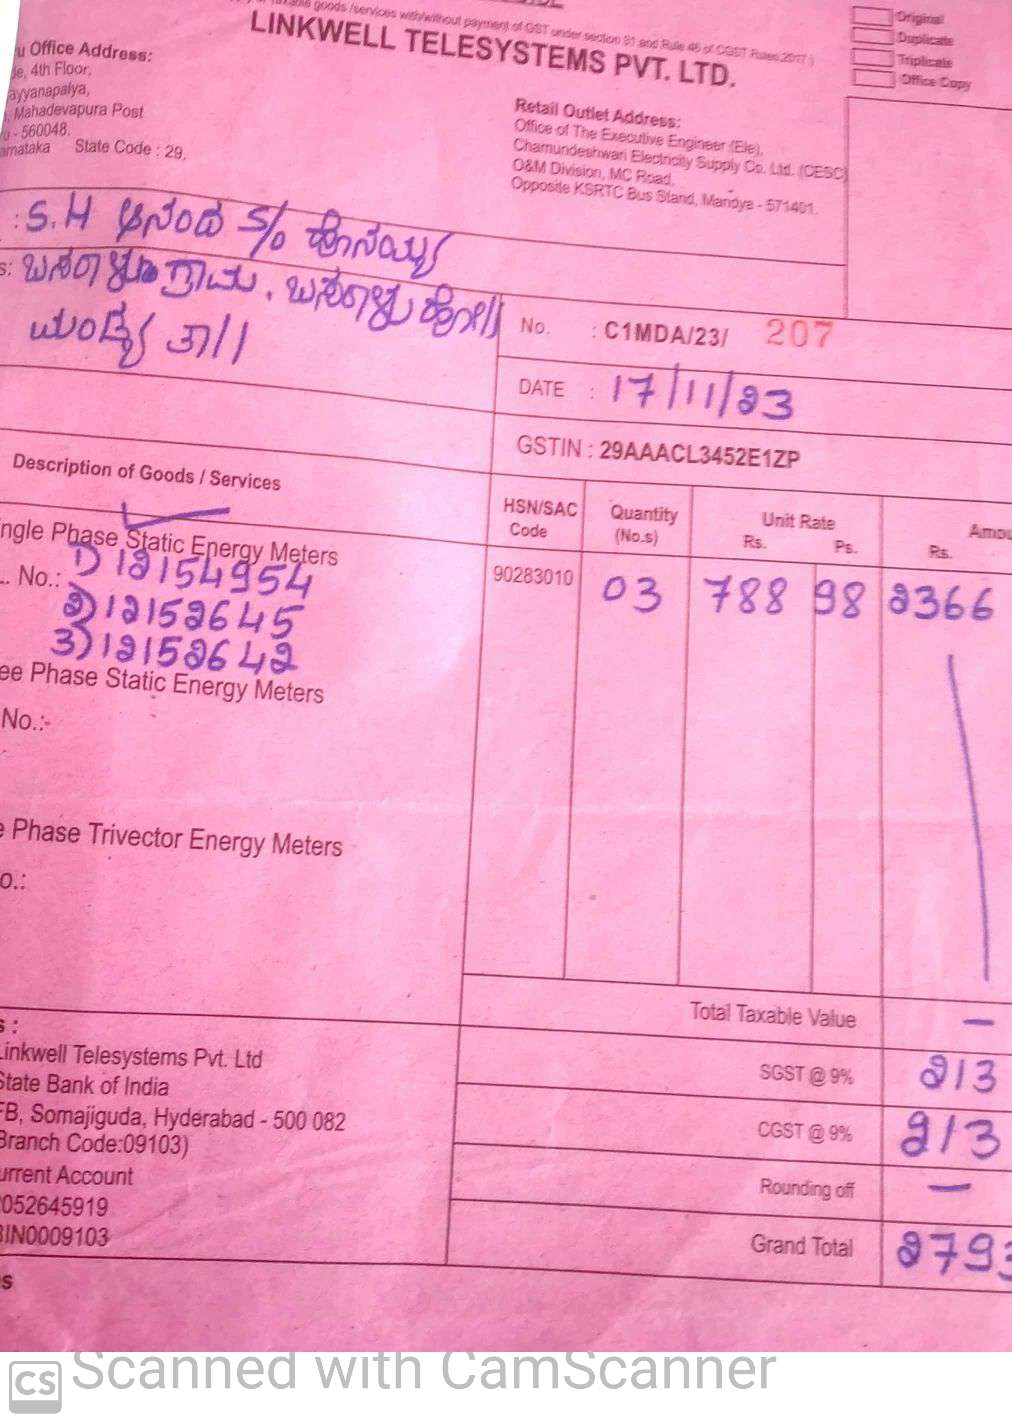 goods /services with/without payment of GST under section 31 and Rule 46 of CGST Rules 2017 )
LINKWELL TELESYSTEMS PVT. LTD.
Original
Duplicate
Triplicate
Office Copy
u Office Address:
e, 4th Floor,
ayyanapalya,
Mahadevapura Post
u - 560048.
arnataka State Code : 29,
Retail Outlet Address:
Office of The Executive Engineer (Ele),
Chamundeshwari Electricity Supply Co. Ltd. (CESC)
O&M Division, MC Road,
Opposite KSRTC Bus Stand, Mandya - 571401.
: S.H ಆನಂದ S/o ಹೊನ್ನಯ್ಯ
s: ಬಸರಾಳು ಗ್ರಾಮ, ಬಸರಾಳು ಹೋ||
ಮಂಡ್ಯ ತಾ||
No. : C1MDA/23/ 207
DATE : 17/11/23
GSTIN : 29AAACL3452E1ZP
Description of Goods / Services
HSN/SAC Code
Quantity (No.s)
Unit Rate
Rs. Ps.
Amou
Rs.
ngle Phase Static Energy Meters
.. No.: 1) 12154954
2) 12152645
3) 12152642
90283010 03 788 98 2366
ee Phase Static Energy Meters
No.:-
e Phase Trivector Energy Meters
o.:
Total Taxable Value —
SGST @ 9% 213
CGST @ 9% 213
Rounding off —
Grand Total 2793
s :
Linkwell Telesystems Pvt. Ltd
State Bank of India
FB, Somajiguda, Hyderabad - 500 082
Branch Code:09103)
urrent Account
052645919
BIN0009103
s
CS Scanned with CamScanner